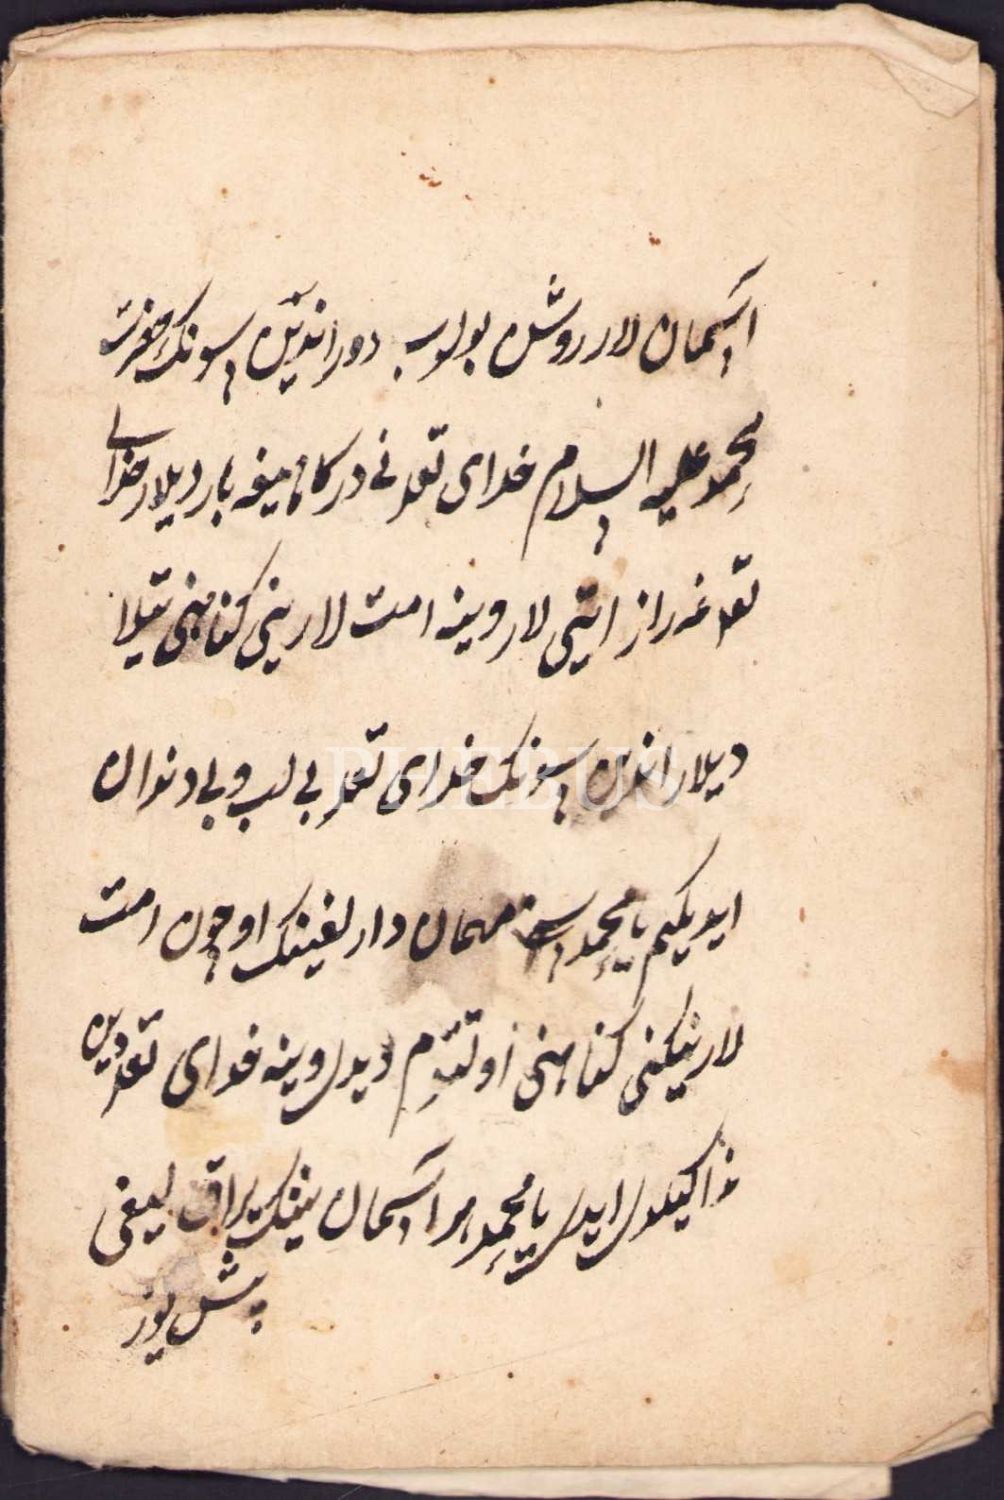 آسمان لار روشن بولوب دور اندین سونک حضرت
محمد علیه السلام خدای تعه نی درکاهیغه باردیلار خدای
تعه غه راز ایتی لار وینه امت لارینی کناهنی تیلا
دیلار اندین سونک خدای تعه بی لب و بی دندان
ایدیکیم یا محمد سنه مهمان دارلغینک اوچون امت
لارینکنی کناهنی اوتتیم دیدی وینه خدای تعه دین
ندا کیلدی ایدی یا محمد هر آسمان نینک یراق لیغی
پیش یوز
PHEBUS